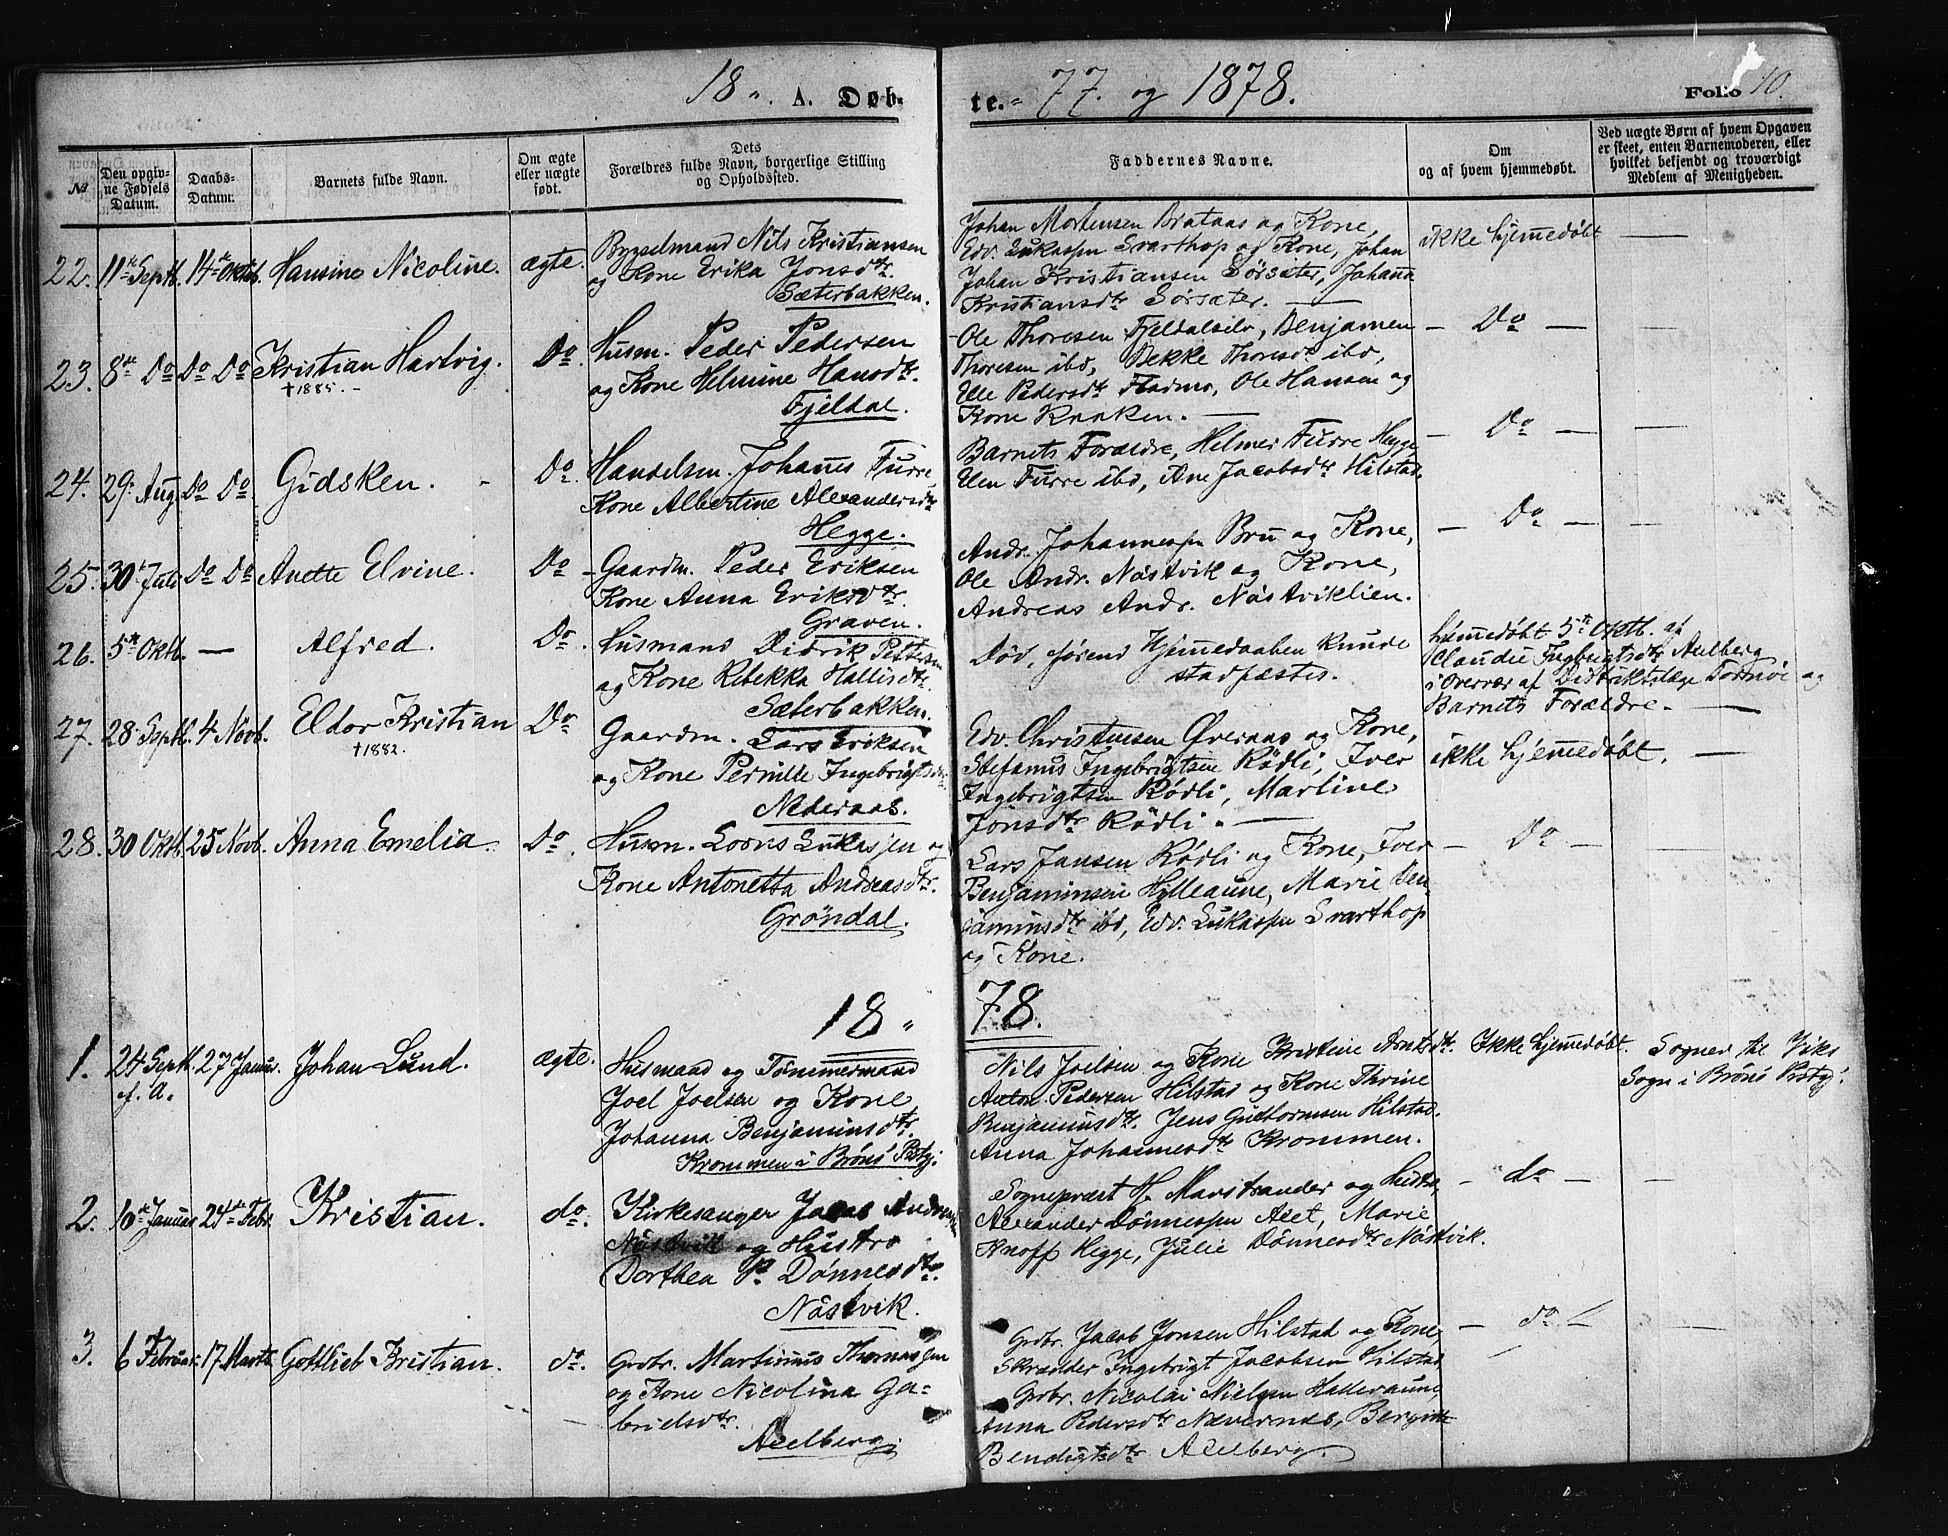 18 „. A. Døb-
te. = 77. og 1878.
Folio 10.
№
Den opgiv-
ne Fødsels
Datum.
Daabs-
Datum.
Barnets fulde Navn.
Om ægte
eller uægte
født.
Dets
Forældres fulde Navn, borgerlige Stilling
og Opholdssted.
Faddernes Navne.
Om
og af hvem hjemmedøbt.
Ved uægte Børn af hvem Opgaven
er skeet, enten Barnemoderen, eller
hvilket bekjendt og troværdigt
Medlem af Menigheden.
22. 11te Septb. 14te Oktb. Hansine Nicoline. ægte.
Bygselmand Nils Kristiansen
og Kone Erika Jonsdtr.
Sæterbakken.
Johan Mortensen Brataas og Kone,
Edv. Lukassen Svarthop og Kone, Johan
Johan Kristiansen Sørsæter, Johanna
Kristiansdtr Sørsæter. —
ikke hjemmedøbt —
23. 8de Do Do Do Kristian Hartvig. Do.
† 1885. –
Husm. Peder Pedersen
og Kone Helmine Hansdtr.
Fjeldal.
Ole Thoresen Fjeldalselv, Benjamen
Thoresen ibd, Bekke Thoresdtr ibd,
Ele Pedersdtr Fladmo, Ole Hansen og
Kone Kraken. —
— Do —
24. 29. Aug. Do Do. Gidsken. Do.
Handelsm. Johannes Furre,
Kone Albertine Alexandersdtr
Hegge.
Barnets Forældre, Helmer Furre Hegge
Elen Furre ibd, Ane Jacobsdtr Hilstad.
— Do —
25. 30te Juli Do Do. Anette Elvine. Do
Gaardm. Peder Eriksen
Kone Anna Eriksdtr.
Graven.
Andr. Johannessen Bru og Kone,
Ole Andr. Nästvik og Kone,
Andreas Andr. Nästviklien.
— Do —
26. 5te Oktb. — Alfred. Do.
Husmand Didrik Pettersen
og Kone Rebekka Hallisdtr.
Sæterbakken.
Död, förend Hjemmedaaben kunde
stadfæstes.
hjemmedøbt 5te Oktb. af
Claudie Ingbrigtsdtr Aelberg
i Overvær af Distriktslæge Tormöe og
Barnets Forældre. —
27. 28. Septb. 4. Novb. Eldor Kristian Do
† 1882.
Gaardm. Lars Eriksen
og Kone Pernille Ingebrigtsdtr
Nederaas.
Edv. Christensen Øveraas og Kone,
Stefanus Ingebrigtsen Rödli, Iver
Ingebrigtsen Rödli, Martine
Jonsdtr Rödli. —
ikke hjemmedøbt. —
28. 30 Oktb. 25 Novb. Anna Emelia. Do.
Husm. Lorns Lukassen og
Kone Antonetta Andreasdtr.
Gröndal.
Lars Jansen Rödli og Kone, Iver
Benjaminsen Hylleaune, Marie Ben-
jaminsdtr ibd, Edv. Lukassen Svarthop
og Kone.
— Do —
18 „ 78.
1. 24 Septb. 27 Januar. Johan Lund. ægte.
f. A.
Husmand og Tömmermand
Joel Joelsen og Kone
Johanna Benjaminsdtr.
Krommen i Bröns Pstgj.
Nils Joelsen og Kone Kristine Arntsdtr.
Anton Pedersen Hilstad og Kone Thrine
Benjaminsdtr. Jens Guthormsen Hilstad.
Anna Johannesdtr Krommen.
Ikke hjemmedøbt.
Sogner til Viks
Sogn i Bröns Pstgj.
2. 16de Januar 24de Febr. Kristian. do.
Kirkesanger Jacob Andreassen
Nästvik og Hustro
Dorthea P. Dönnesdtr.
Nästvik.
Sognepræst H. Marstrander og Hustro,
Alexander Dönnessen Aelet, Marie
Knoff Hegge, Julie Dönnesdtr Nästvik.
— do —
3. 6 Februar. 17. Marts. Gottlieb Kristian. do.
Grdbr. Martinus Thomassen
og Kone Nicolina Ga-
brielsdtr.
Aelberg.
Grdbr. Jacob Jonsen Hilstad og Kone
Skrædder Ingebrigt Jacobsen Hilstad
Grdbr. Nicolai Nielsen Halleraune
Anna Pedersdtr Nævernes, Bergitte
Bendigtsdtr. Aelberg.
— do —